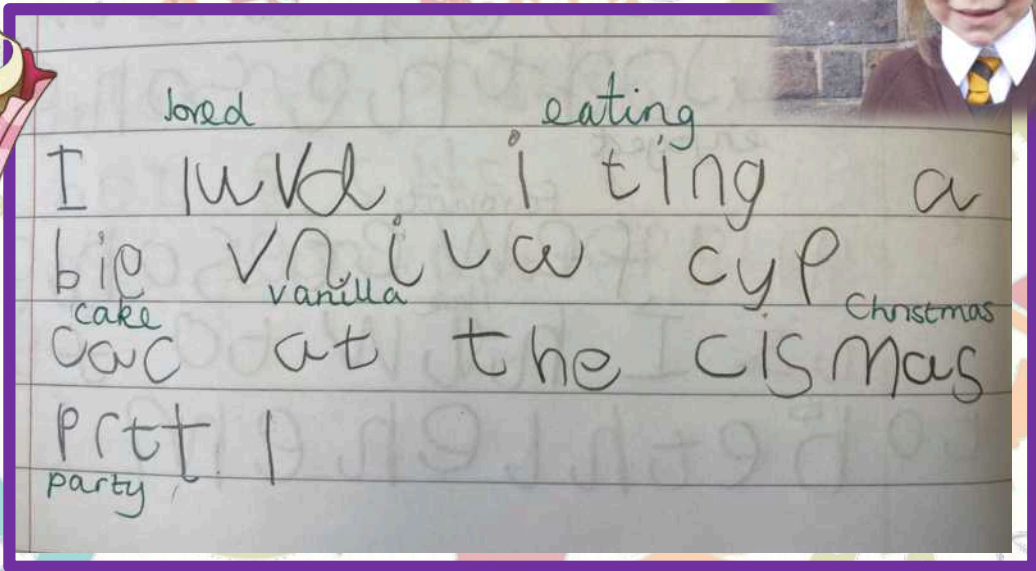 loved eating
I luvd i ting a
big vniva cyp
vanilla
cake Christmas
cac at the cismas
prtt I
party